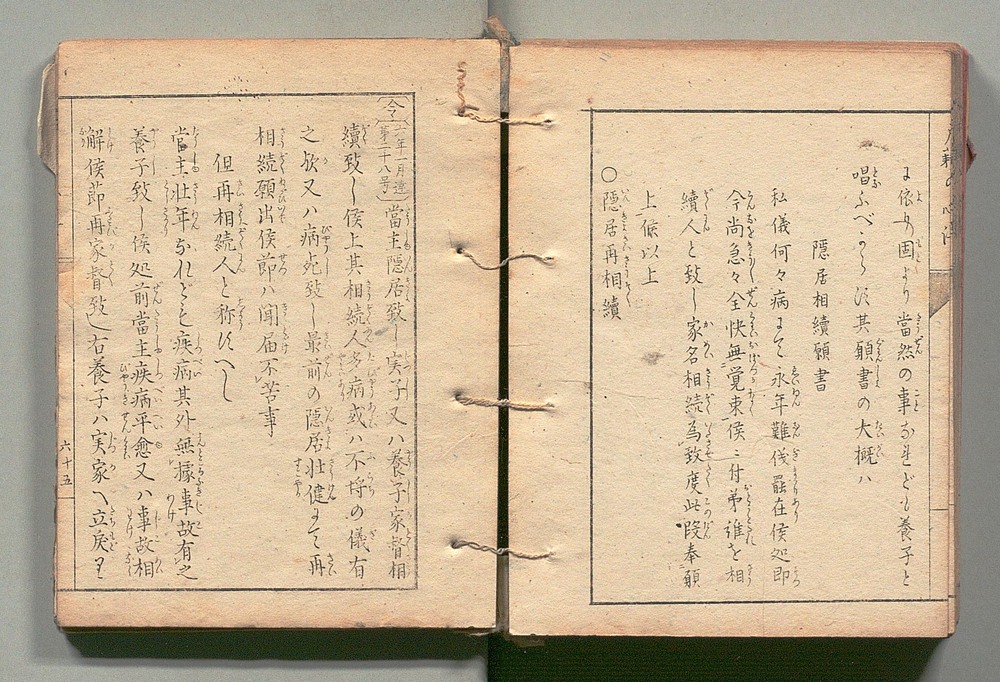 に依り固より当然の事なれども養子と
唱ふべからず其願書の大概ハ
隠居相續願書
私儀何々病にて永年難伐罷在候処即
今尚急々全快無覚束候ニ付弟誰を相
續人と致し家名相続為致度此段奉願
上候以上
○隠居再相續
令 六年一月達第二十八号 當主隠居致し実子又ハ養子家督相
續致し候上其相続人多病或ハ不埒の儀有
之歟又ハ病死致し最前の隠居壮健にて再
相続願出候節ハ聞届不苦事
但再相続人と称すべし
當主壮年なれども疾病其外無據事故有之
養子致し候処前當主疾病平愈又ハ事故相
解候節再家督致し右養子ハ実家へ立戻り
六十五